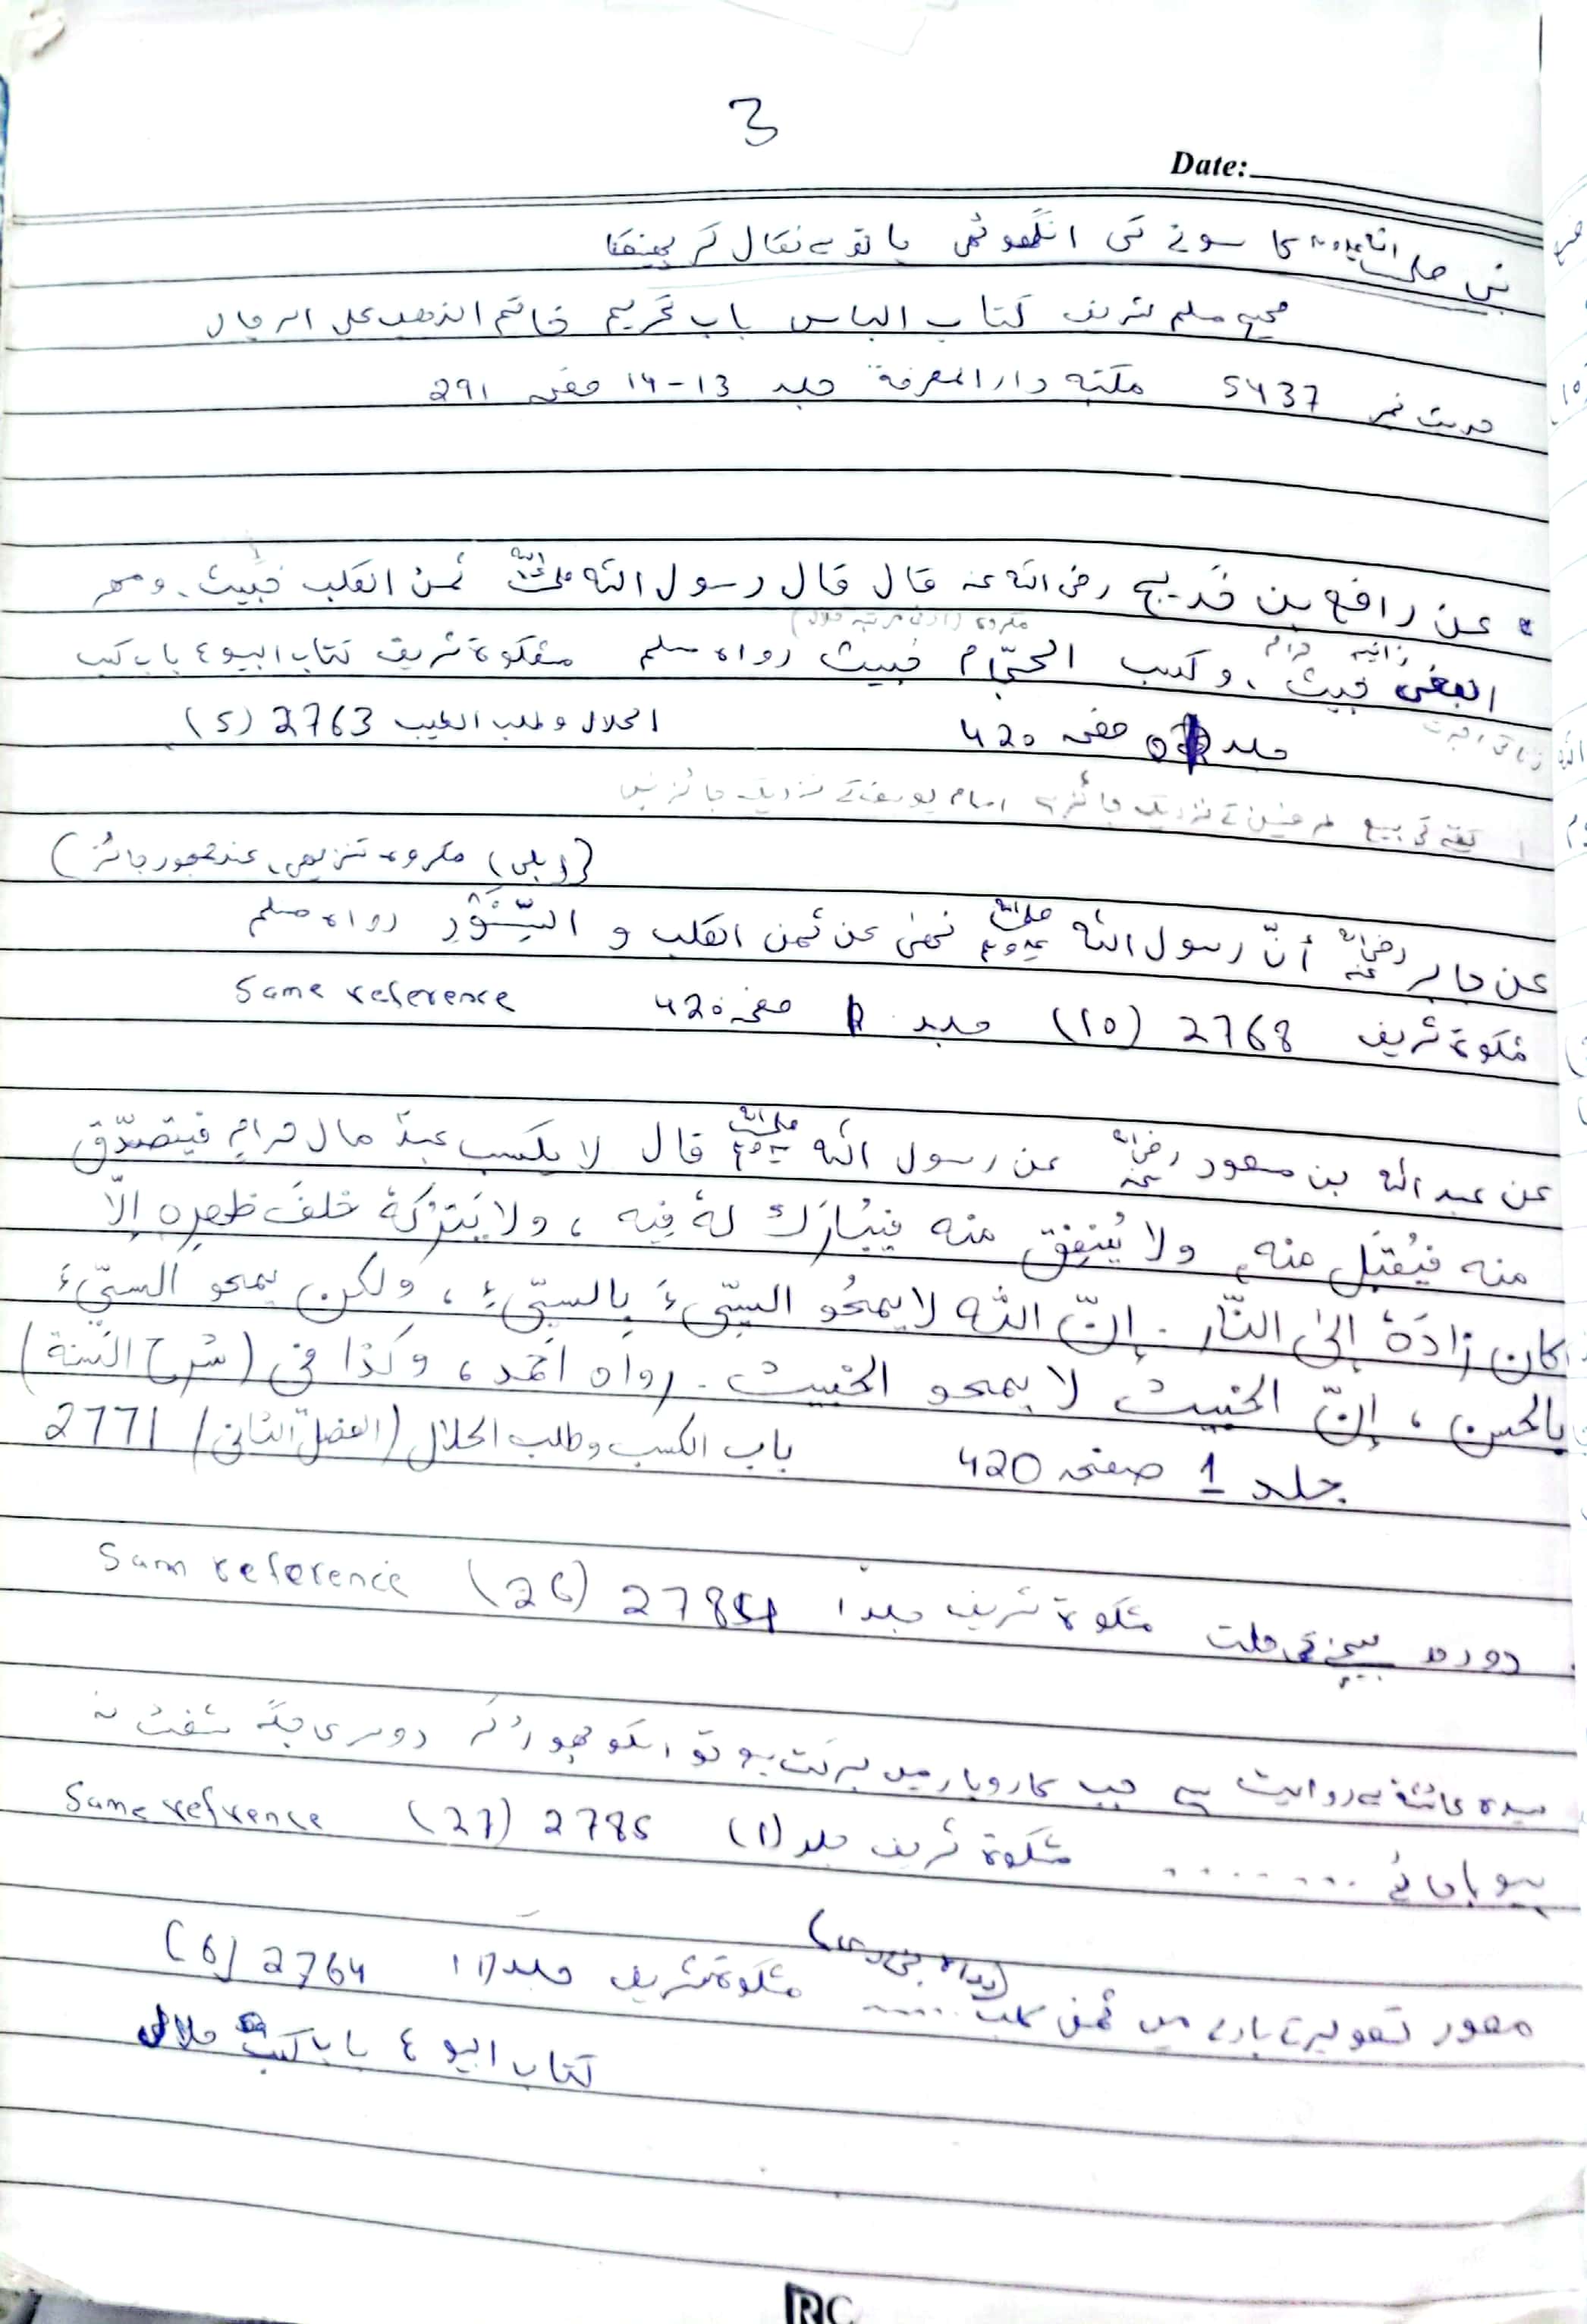 3
Date:
نبی صلی اللہ علیہ وسلم کا سونے کی انگھوٹھی ہاتھ سے نکال کر پھینکنا
صحیح مسلم شریف کتاب الباس باب تحریم خاتم الذھب علی الرجال
حدیث نمبر 5437 مکتبہ دار المعرفۃ جلد 13-14 صفحہ 291
• عن رافع بن خَدیج رضی اللہ عنہ قال قال رسول اللہ صلی اللہ علیہ وسلم ثمنُ الکلب خَبیث، ومھر
مکروہ (ادنی مرتبہ حلال)
زانیہ حرام
البغی خبیثٌ، و کسب الحجّام خبیث رواہ مسلم مشکوۃ شریف کتاب البیوع باب کسب
زنا کی اجرت
جلد صفحہ 420 الحلال و طلب الطیب 2763 (5)
کتے کی بیع طرفین کے نزدیک جائز ہے امام یوسف کے نزدیک جائز نہیں
(بلی) مکروہ تنزیھی، عند جمھور جائز)
عن جابر رضی اللہ عنہ أنّ رسول اللہ صلی اللہ علیہ وسلم نھیٰ عن ثمن الکلب و السِّنَّوْرِ رواہ مسلم
مشکوۃ شریف 2768 (10) جلد 1 صفحہ 420 Same reference
عن عبد اللہ بن مسعود رضی اللہ عنہ عن رسول اللہ صلی اللہ علیہ وسلم قال لا یکسب عبدٌ مال حرامٍ فیتصدّق
منہ فیُقبَل منہ، ولا یُنفِق منہ فیُبارَک لہٗ فیہ، ولا یَترُکہٗ خلفَ ظھرِہٖ إلّا
کان زادَہٗ إلیٰ النّار. إنّ اللہ لا یمحُو السیّئَ بالسیّئِ، ولکن یمحو السیّئَ
بالحسن، إنّ الخبیث لا یمحو الخبیث. رواہ احمد، وکذا فی (شرح السّنۃ)
جلد 1 صفحہ 420 باب الکسب وطلب الحلال (الفصل الثانی) 2771
دودھ بیچنے کی حلت مشکوۃ شریف جلد ۱ 2784 (26) Sam reference
سیدہ عائشہ سے روایت ہے جب کاروبار میں برکت ہو تو اسکو چھوڑ کر دوسری جگہ شفٹ نہ
ہو جائے ........ مشکوۃ شریف جلد (۱) 2785 (27) Same refrence
(رواہ بخاری)
مصور تصویر کے بارے میں ثمن کلب ..... مشکوۃ شریف جلد ۱ 2764 (6)
کتاب البیوع باب کسب حلال
RC